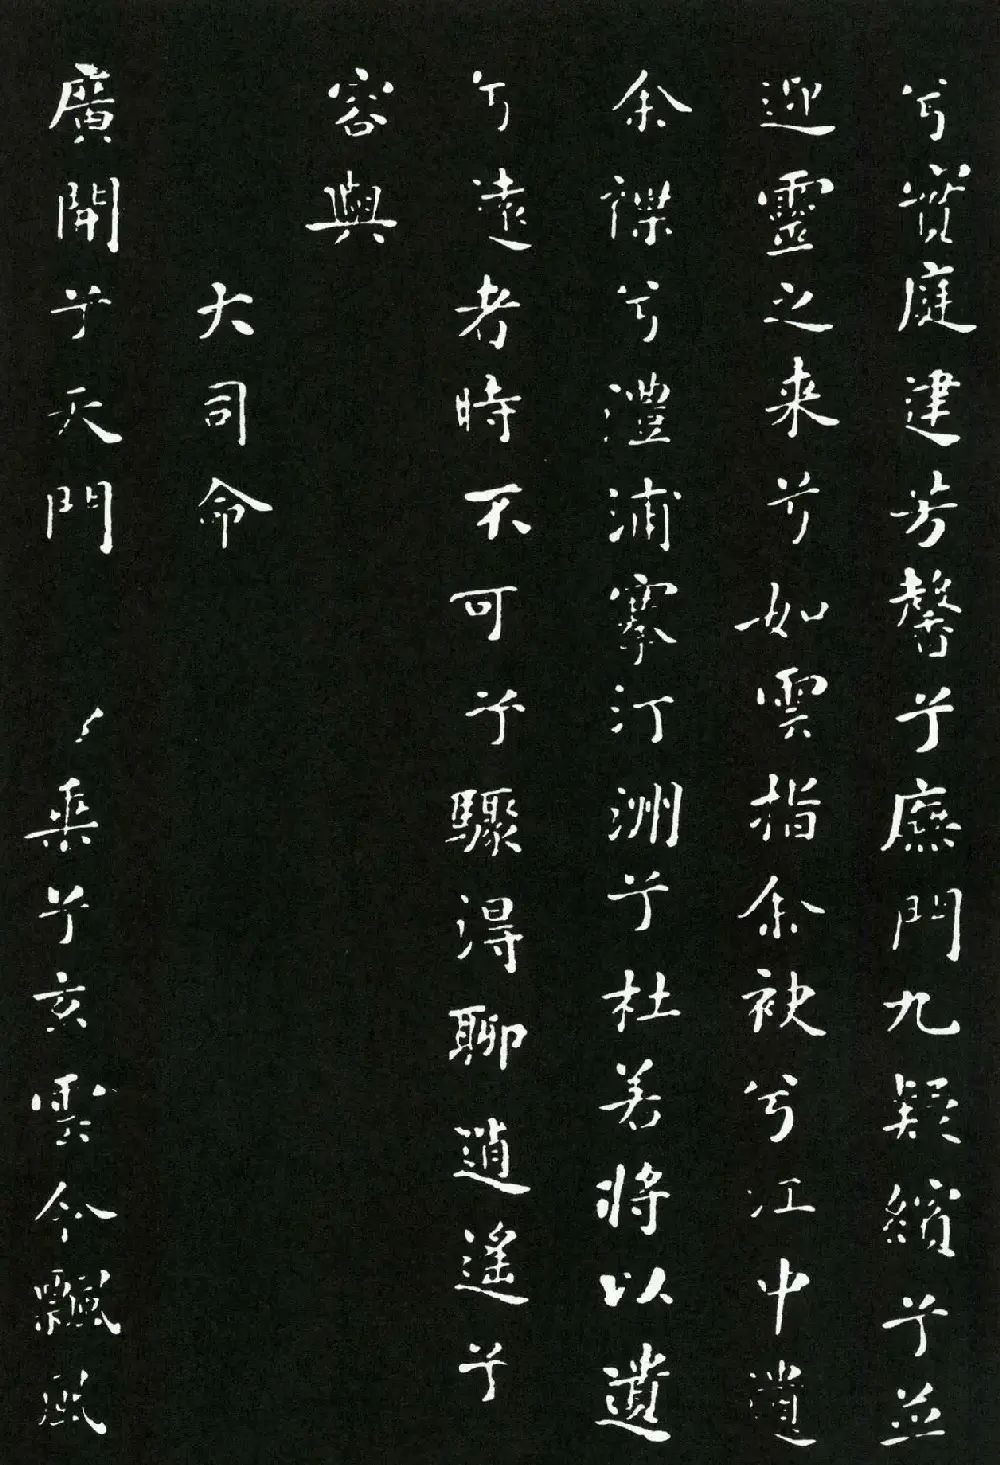 兮實庭建芳馨兮廡門九疑繽兮並
迎靈之来兮如雲捐余袂兮江中遺
余褋兮澧浦搴汀洲兮杜若將以遺
兮遠者時不可兮驟淂聊逍遙兮
容與
大司命
廣開兮天門乗兮玄雲令飄風